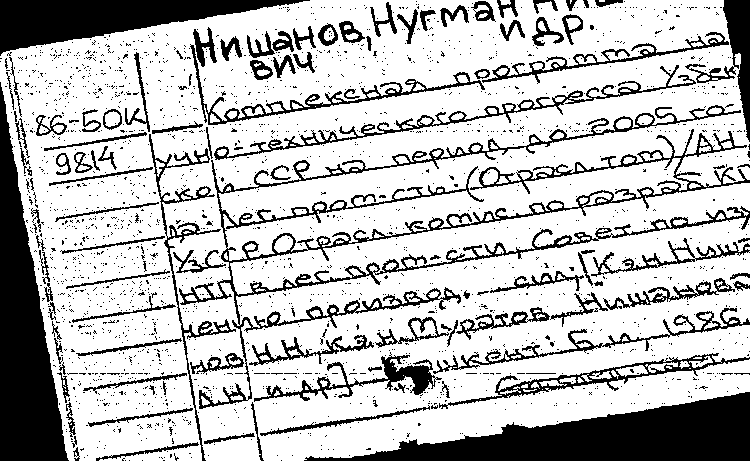 Нишанов, Нугман Ниша
вич и др.
86-50к Комплексная программа на
9814 учно-технического прогресса Узбек
ской ССР на период до 2005 го-
да: Лег. пром-сть: (Отрасл. том)/АН
УзССР. Отрасл. комис. по разраб. КП
НТП в лег. пром-сти, Совет по изу
чению производ. сил; [К.э.н. Ниша
нов Н.Н., к.э.н. Муратов, Нишанова
Д.Н. и др]. - Ташкент: Б.и, 1986.
См. след. карт.